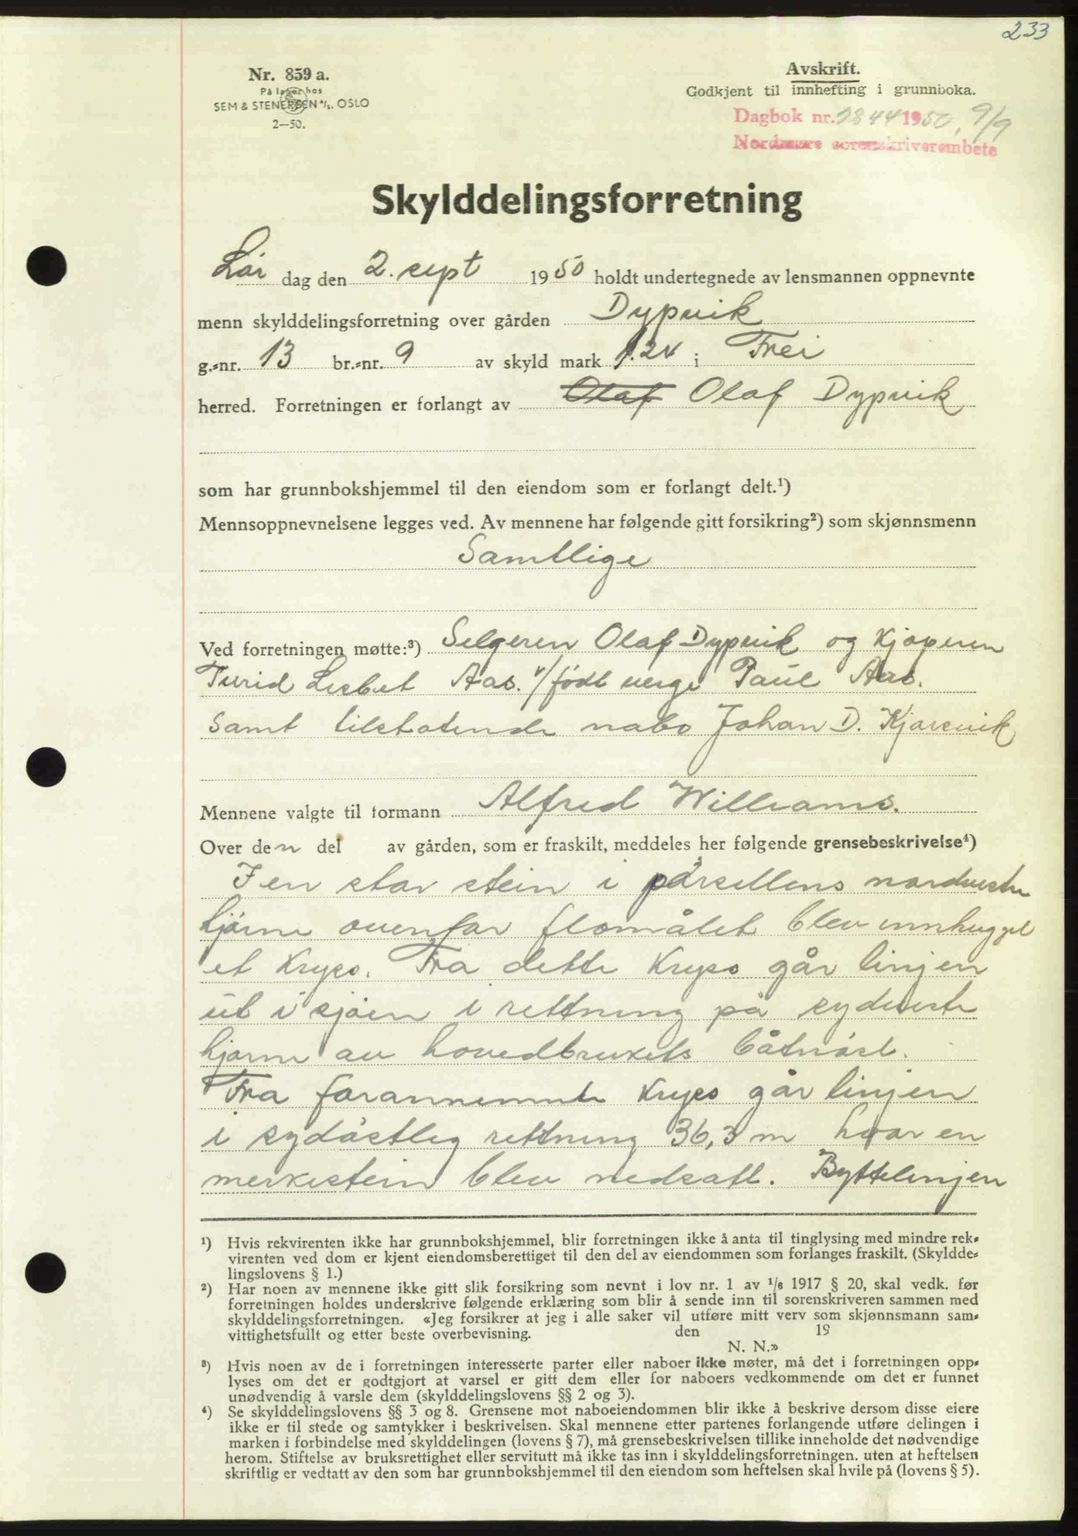 233
Nr. 859 a.
På lager hos
SEM & STENERSEN A/S. OSLO
2—50.
Avskrift.
Godkjent til innhefting i grunnboka.
Dagbok nr. 2844 1950, 9/9
Nordmøre sorenskriverembete
Skylddelingsforretning
Lør dag den 2. sept 1950 holdt undertegnede av lensmannen oppnevnte
menn skylddelingsforretning over gården Dypvik
g.-nr. 13 br.-nr. 9 av skyld mark 1.24 i Frei
herred. Forretningen er forlangt av Olaf Olaf Dypvik
som har grunnbokshjemmel til den eiendom som er forlangt delt.¹)
Mennsoppnevnelsene legges ved. Av mennene har følgende gitt forsikring²) som skjønnsmenn
Samtlige
Ved forretningen møtte:³) Selgeren Olaf Dypvik og Kjøperen
Turid Lisbet Aas. v/født verge Paul Aas.
samt tilstøtende nabo Johan D. Kjørsvik
Mennene valgte til formann Alfred Williams.
Over den del av gården, som er fraskilt, meddeles her følgende grensebeskrivelse⁴)
I en stor stein i parsellens nordvestre
hjørne ovenfor flomålet blev innhugget
et kryss. Fra dette kryss går linjen
ut i sjøen i rettning på sydvestre
hjørne av hovedbrukets båtnøst.
Fra forannevnte kryss går linjen
i sydøstleg rettning 36,3 m hvor en
merkestein blev nedsatt. Byttelinjen
¹) Hvis rekvirenten ikke har grunnbokshjemmel, blir forretningen ikke å anta til tinglysing med mindre rek-
virenten ved dom er kjent eiendomsberettiget til den del av eiendommen som forlanges fraskilt. (Skyldde-
lingslovens § 1.)
²) Har noen av mennene ikke gitt slik forsikring som nevnt i lov nr. 1 av 1/6 1917 § 20, skal vedk. før
forretningen holdes underskrive følgende erklæring som blir å sende inn til sorenskriveren sammen med
skylddelingsforretningen. «Jeg forsikrer at jeg i alle saker vil utføre mitt verv som skjønnsmann sam-
vittighetsfullt og etter beste overbevisning. den 19
N. N.»
³) Hvis noen av de i forretningen interesserte parter eller naboer ikke møter, må det i forretningen opp-
lyses om det er godtgjort at varsel er gitt dem eller for naboers vedkommende om det er funnet
unødvendig å varsle dem (skylddelingslovens §§ 2 og 3).
⁴) Se skylddelingslovens §§ 3 og 8. Grensene mot naboeiendommen blir ikke å beskrive dersom disse eiere
ikke er til stede og samtykker i beskrivelsen. Skal mennene etter partenes forlangende utføre delingen i
marken i forbindelse med skylddelingen (lovens § 7), må grensebeskrivelsen tillike inneholde det nødvendige
herom. Stiftelse av bruksrettighet eller servitutt må ikke tas inn i skylddelingsforretningen, uten at heftelsen
skriftlig er vedtatt av den som har grunnbokshjemmel til den eiendom som heftelsen skal hvile på (lovens § 5).